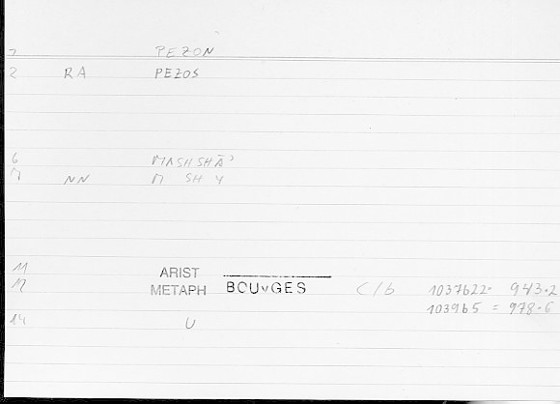 1 PEZON
2 RA PEZOS
6 MASHSHĀ'
7 NN M SH Y
11 ARIST
12 METAPH BOUYGES C/b 1037b22 = 943.2
1039b5 = 978.6
14 U